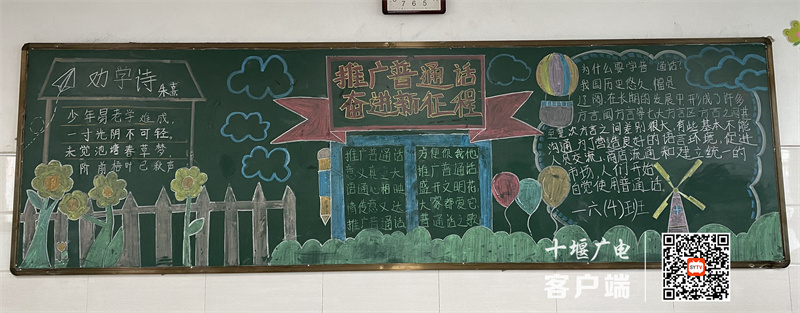 劝学诗
朱熹
少年易老学难成，
一寸光阴不可轻。
未觉池塘春草梦，
阶前梧叶已秋声
推广普通话
奋进新征程
推广普通话
方便你我他
推广普通话
普通话之歌
为什么要学普通话？
我国历史悠久，但是
过两，在长期的发展中形成了许多
方言之间差别很大，有些基本不能
沟通，为了营造良好的语言环境，促进
人员交流，商店流通和建立统一的
市场，人们开始
自觉使用普通话。
一六(4)班
十堰广电
客户端
SYTV